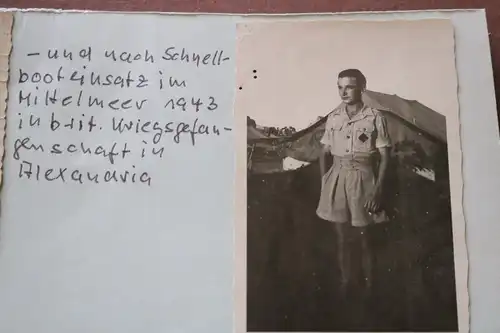 - und nach Schnell-
booteinsatz im
Mittelmeer 1943
in brit. Kriegsgefan-
genschaft in
Alexandria